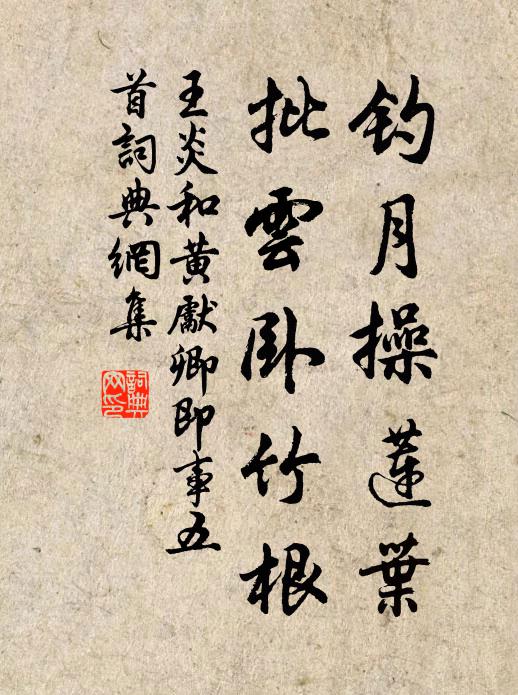 钓月操蓮葉
批雲卧竹根
王炎和黄獻卿即事五
首詞典網集
詞典网印